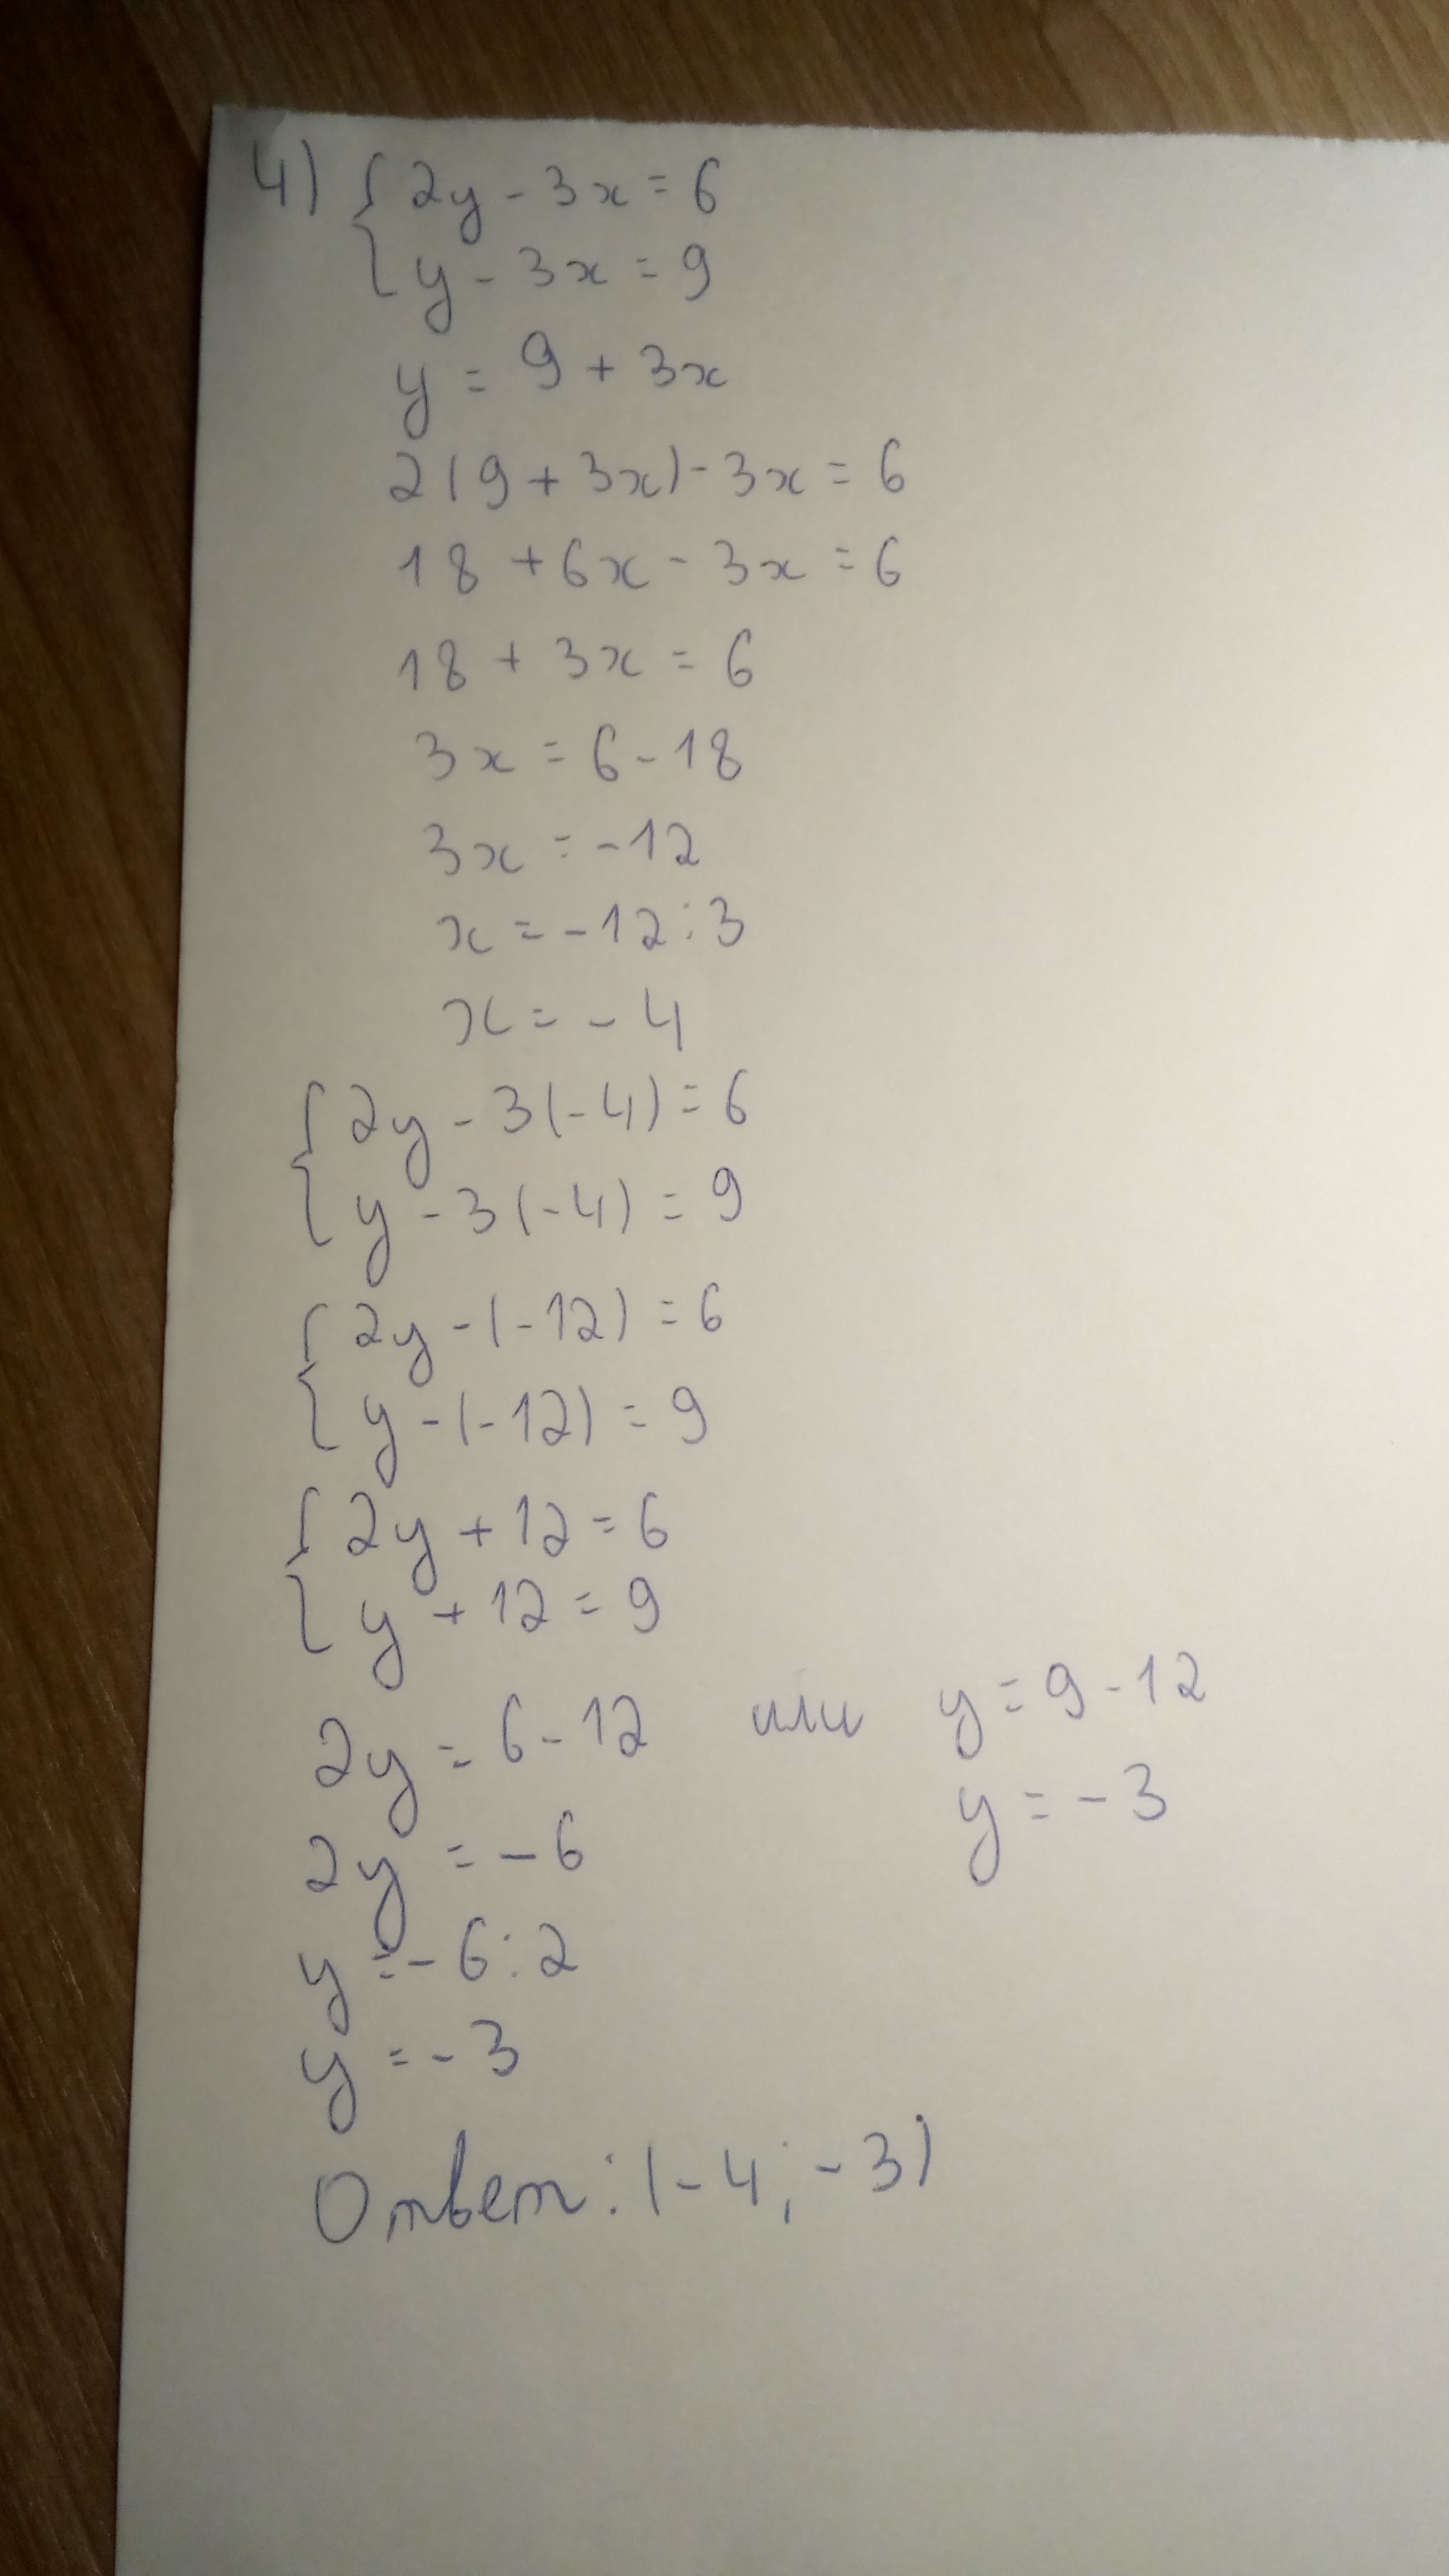 4) { 2y - 3x = 6
{ y - 3x = 9
y = 9 + 3x
2(9 + 3x) - 3x = 6
18 + 6x - 3x = 6
18 + 3x = 6
3x = 6 - 18
3x = -12
x = -12 : 3
x = -4
{ 2y - 3(-4) = 6
{ y - 3(-4) = 9
{ 2y - (-12) = 6
{ y - (-12) = 9
{ 2y + 12 = 6
{ y + 12 = 9
2y = 6 - 12 или y = 9 - 12
2y = -6 y = -3
y = -6 : 2
y = -3
Ответ: (-4; -3)